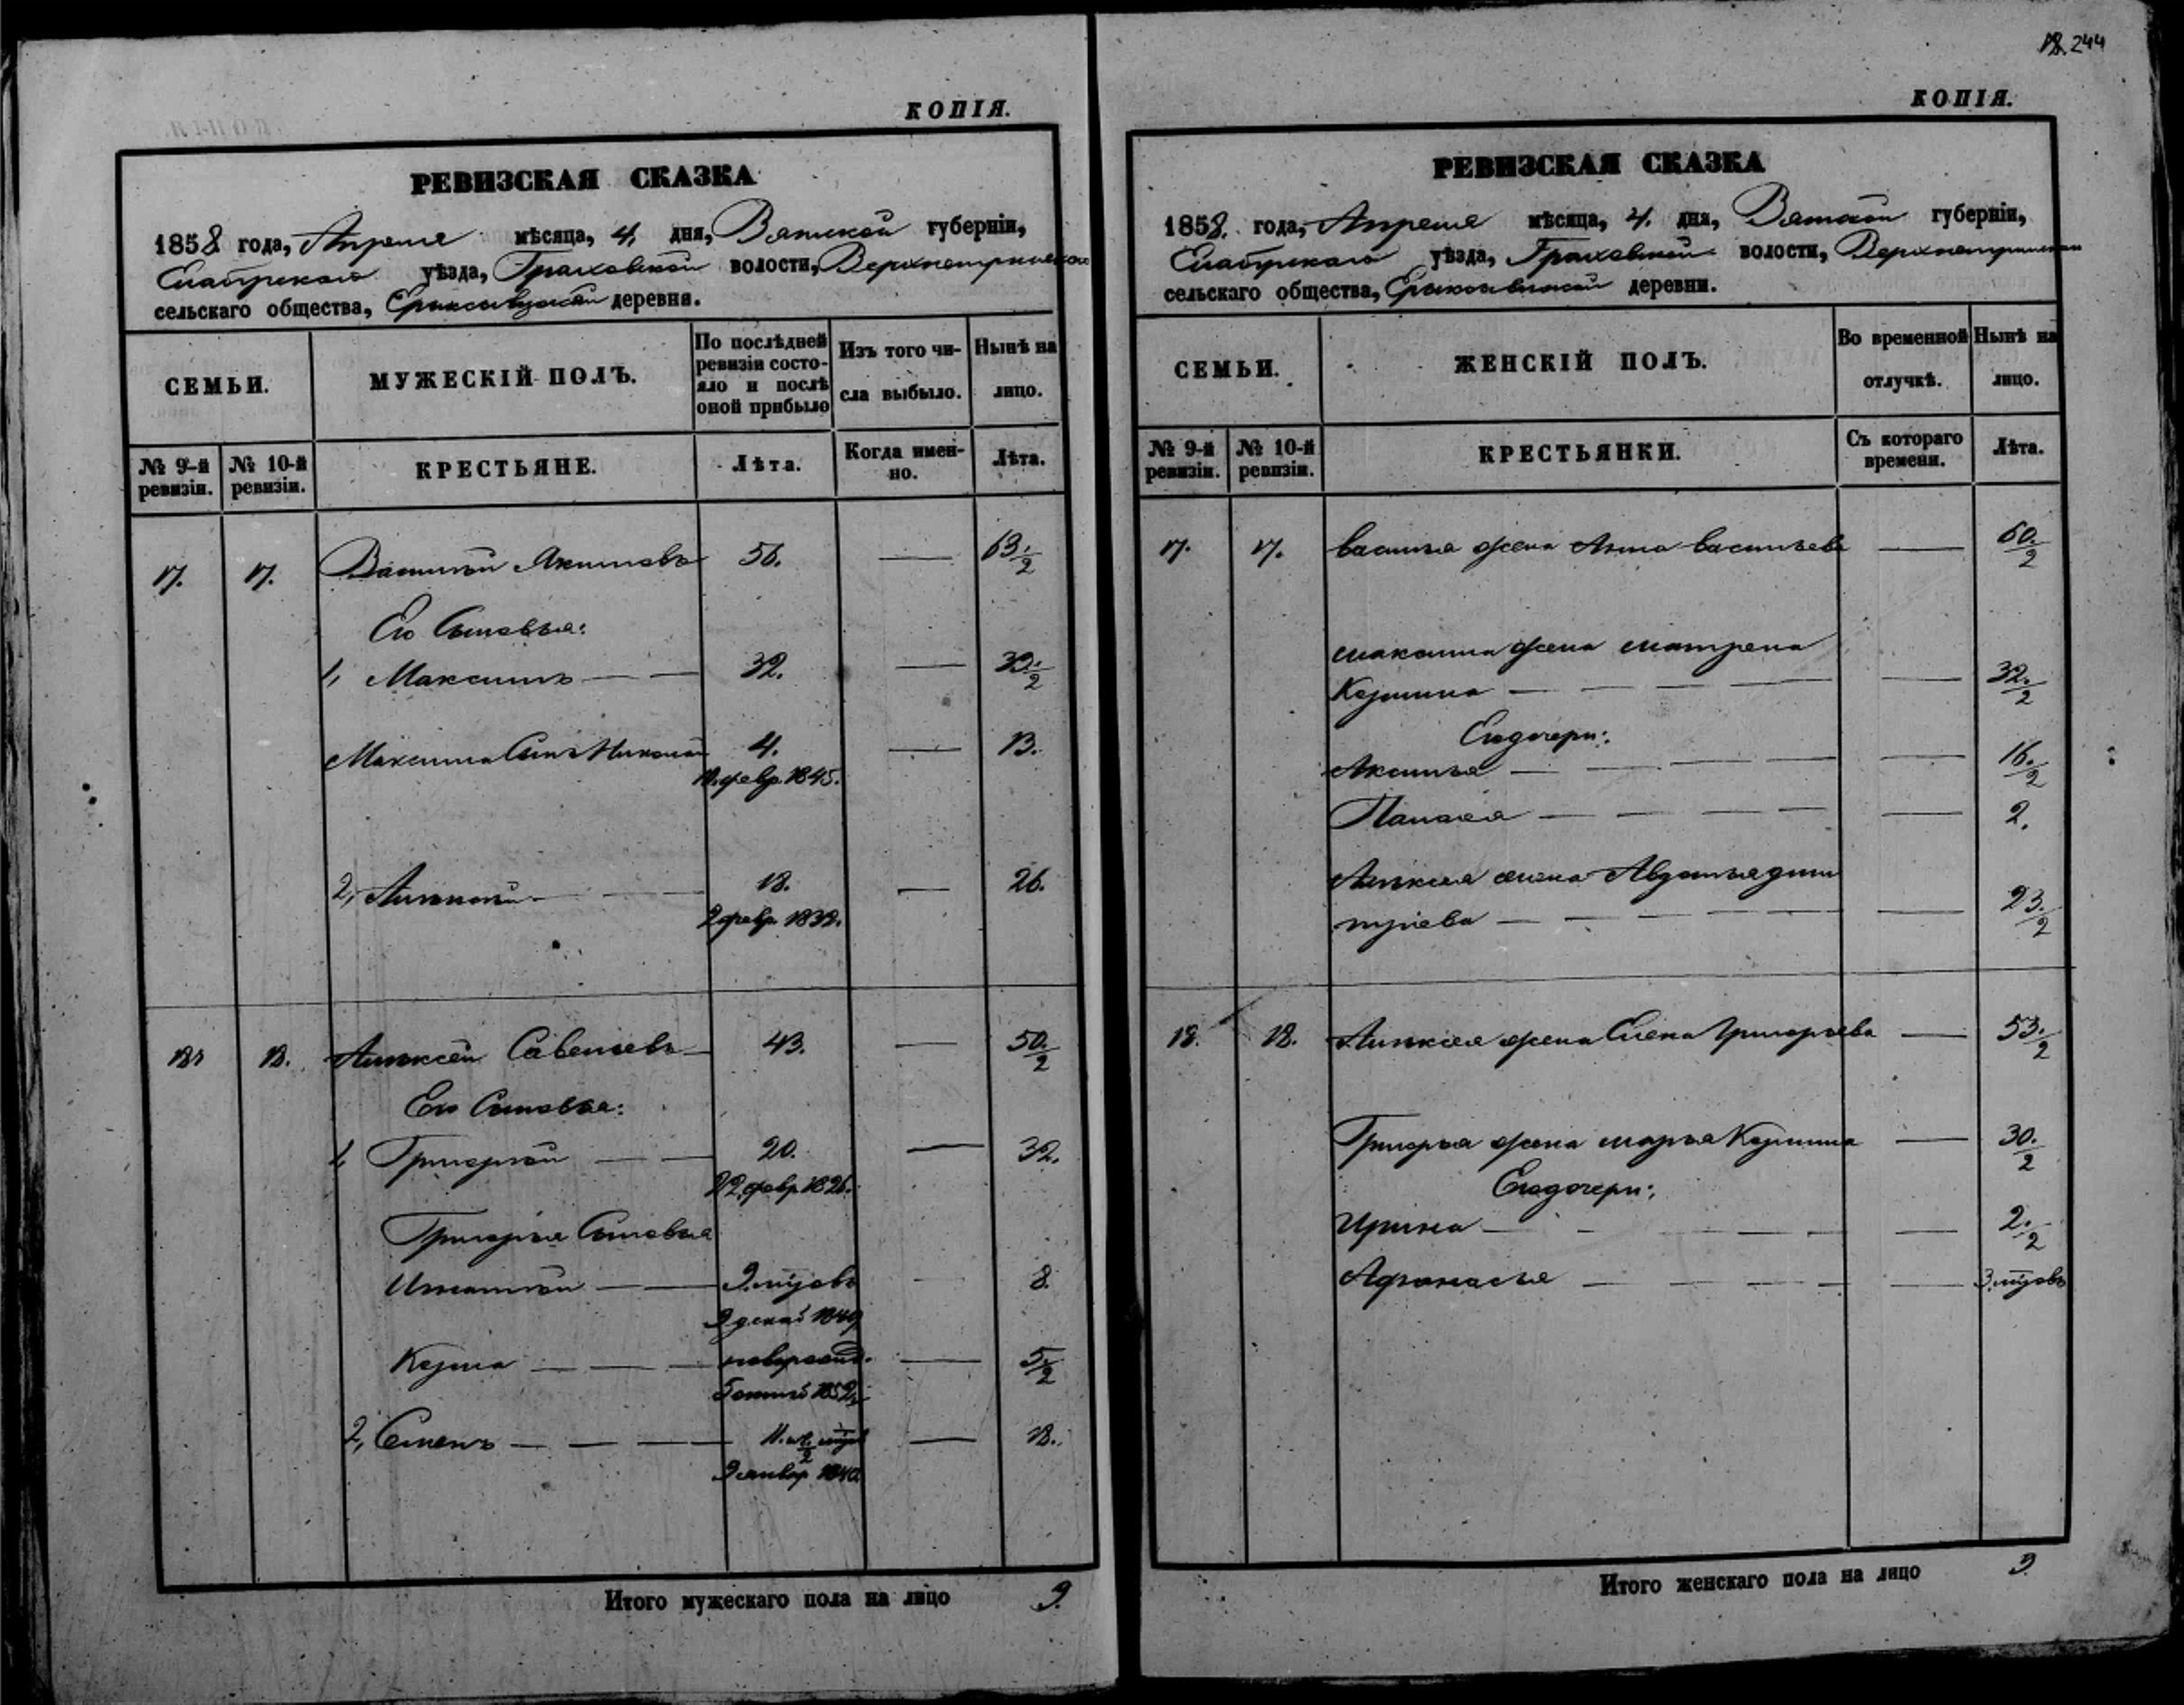 КОПІЯ.
РЕВИЗСКАЯ СКАЗКА
1858 года, Апреля мѣсяца, 4, дня, Вятской губерніи,
Елабужскаго уѣзда, Граховской волости,
сельскаго общества, деревня.
СЕМЬИ.
МУЖЕСКІЙ ПОЛЪ.
По послѣдней ревизіи состояло и послѣ оной прибыло
Изъ того числа выбыло.
Нынѣ на лицо.
№ 9-й ревизіи.
№ 10-й ревизіи.
КРЕСТЬЯНЕ.
Лѣта.
Когда именно.
Лѣта.
17. 17. Василій Якимовъ 56. — 63 1/2
Его Сыновья:
1, Максимъ — — 32. —
Максима Сынъ Николай 4. — 13.
февр. 1845.
2, Алексѣй — — 18. — 26.
2 февр. 1832.
18 18. Алексѣй Савельевъ 43. — 50 1/2
Его Сыновья:
1, Григорій — — 20. — 32.
22 февр. 1826.
Григорья Сыновья
Игнатій — — 9 мцовъ — 8.
9 декаб 1849
Козма — — — новорожд. — 5 1/2
1852
2, Семенъ — — — — 18.
9 январ 1840
Итого мужескаго пола на лицо 9.
18. 244
КОПІЯ.
РЕВИЗСКАЯ СКАЗКА
1858. года, Апреля мѣсяца, 4. дня, Вятской губерніи,
Елабужскаго уѣзда, Граховской волости,
сельскаго общества, деревни.
СЕМЬИ.
ЖЕНСКІЙ ПОЛЪ.
Во временной отлучкѣ.
Нынѣ на лицо.
№ 9-й ревизіи.
№ 10-й ревизіи.
КРЕСТЬЯНКИ.
Съ котораго времени.
Лѣта.
17. 17. Василья жена Анна Васильева — 60 1/2
Максима жена Матрена
Козмина — — — — — 32 1/2
Его дочери:
Аксинья — — — — — 16 1/2
— — — — — 2.
Алексѣя жена Авдотья Дми
тріева — — — — — 23 1/2
18. 18. Алексѣя жена Елена Григорьева — 53 1/2
Григорья жена Марья Козмина — 30 1/2
Его дочери:
Ирина — — — — — 2 1/2
Афанасья — — — — — 3 мцовъ
Итого женскаго пола на лицо 9